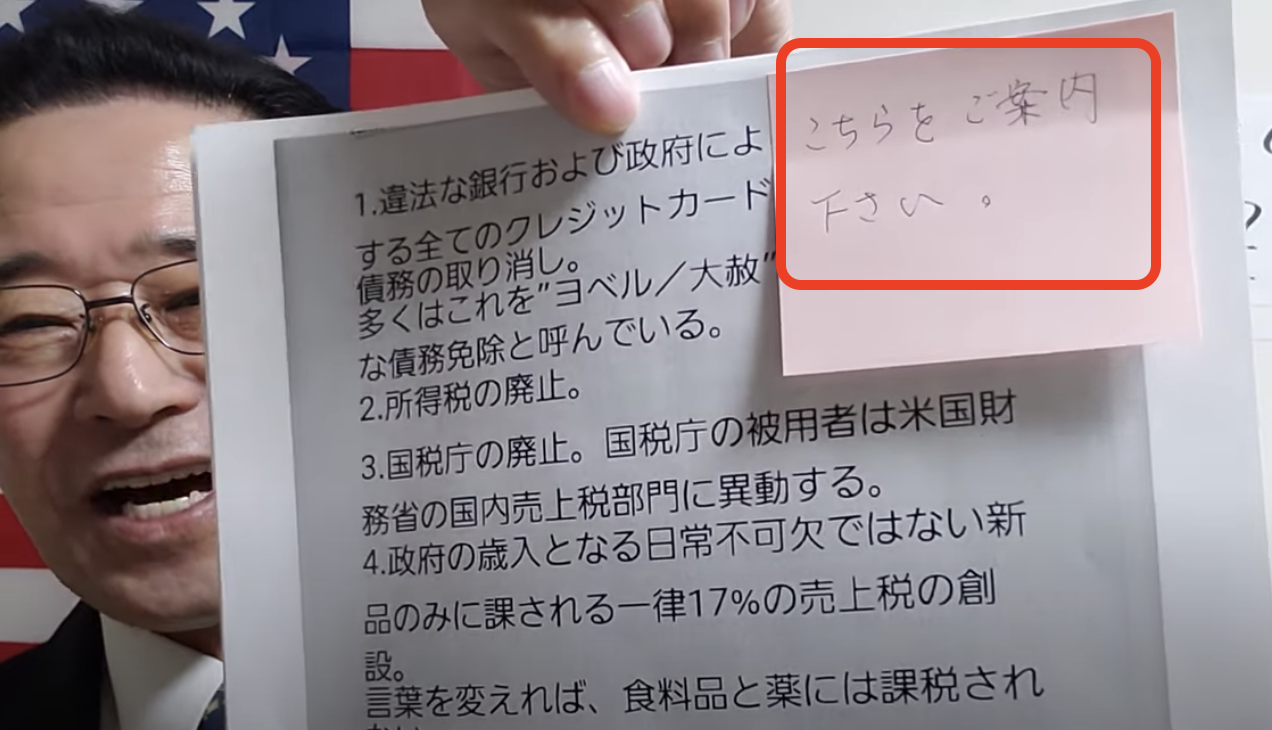 こちらをご案内
下さい。
1.違法な銀行および政府によ
する全てのクレジットカード
債務の取り消し。
多くはこれを”ヨベル／大赦”
な債務免除と呼んでいる。
2.所得税の廃止。
3.国税庁の廃止。国税庁の被用者は米国財
務省の国内売上税部門に異動する。
4.政府の歳入となる日常不可欠ではない新
品のみに課される一律17%の売上税の創
設。
言葉を変えれば、食料品と薬には課税され